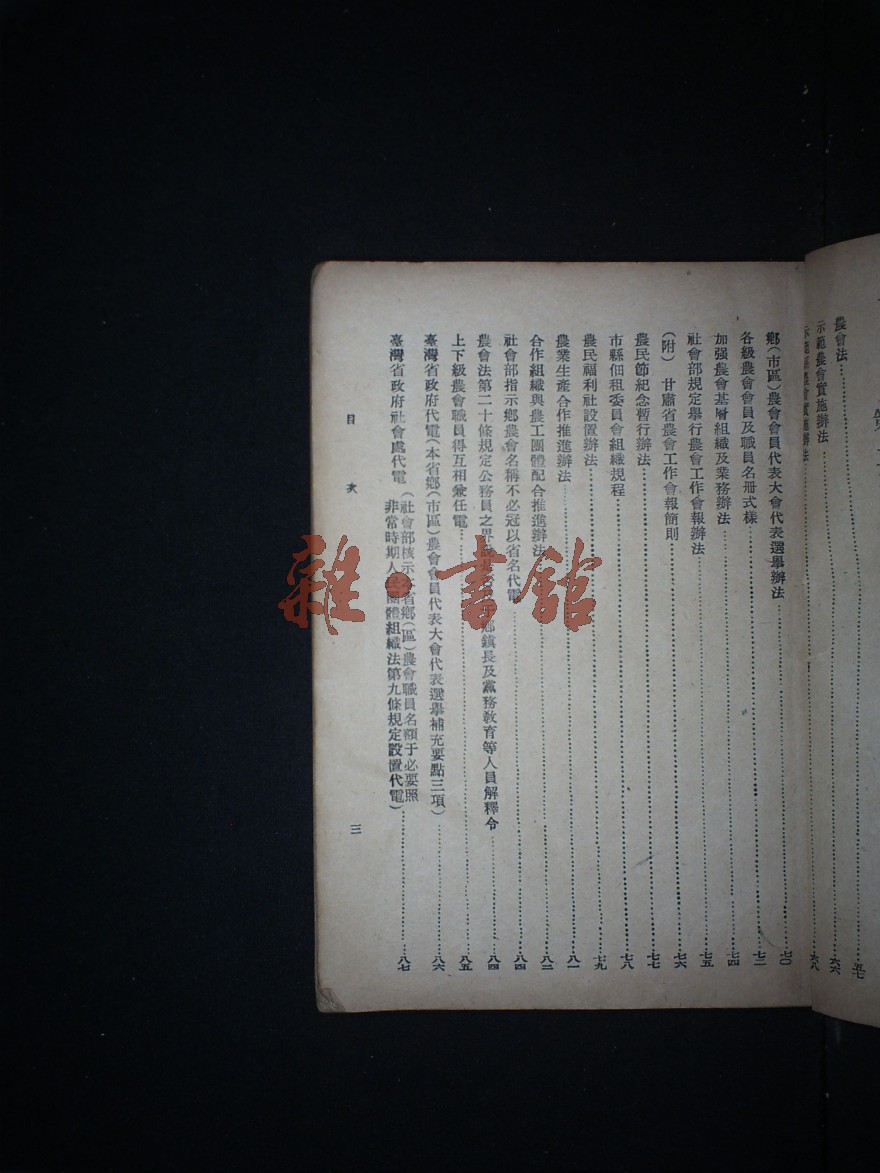 農會法……五七
示範農會實施辦法……六六
示範縣農會實施辦法……六八
鄉(市區)農會會員代表大會代表選舉辦法……七〇
各級農會會員及職員名冊式樣……七二
加强農會基層組織及業務辦法……七四
社會部規定舉行農會工作會報辦法……七五
(附) 甘肅省農會工作會報簡則……七六
農民節紀念暫行辦法……七七
市縣佃租委員會組織規程……七八
農民福利社設置辦法……七九
農業生產合作推進辦法……八一
合作組織與農工團體配合推進辦法……八二
社會部指示鄉農會名稱不必冠以省名代電……八四
農會法第二十條規定公務員之界說鄉鎮長及黨務教育等人員解釋令……八四
上下級農會職員得互相兼任電……八五
臺灣省政府代電(本省鄉(市區)農會會員代表大會代表選舉補充要點三項)……八六
臺灣省政府社會處代電(社會部核示本省鄉(區)農會職員名額于必要照
非常時期人民團體組織法第九條規定設置代電)……八七
目 次 三
雜·書館